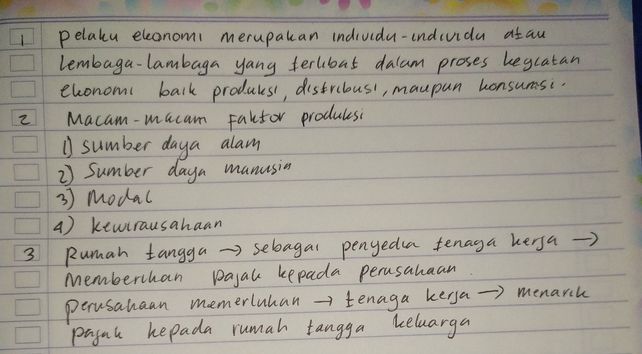 1 Pelaku ekonomi merupakan individu-individu atau
Lembaga-lambaga yang terlibat dalam proses kegiatan
ekonomi baik produksi, distribusi, maupun konsumsi.
2 Macam-macam faktor produksi
1) sumber daya alam
2) Sumber daya manusia
3) Modal
4) kewirausahaan
3 Rumah tangga → sebagai penyedia tenaga kerja →
Memberikan pajak kepada perusahaan.
perusahaan memerlukan → tenaga kerja → menarik
pajak kepada rumah tangga keluarga